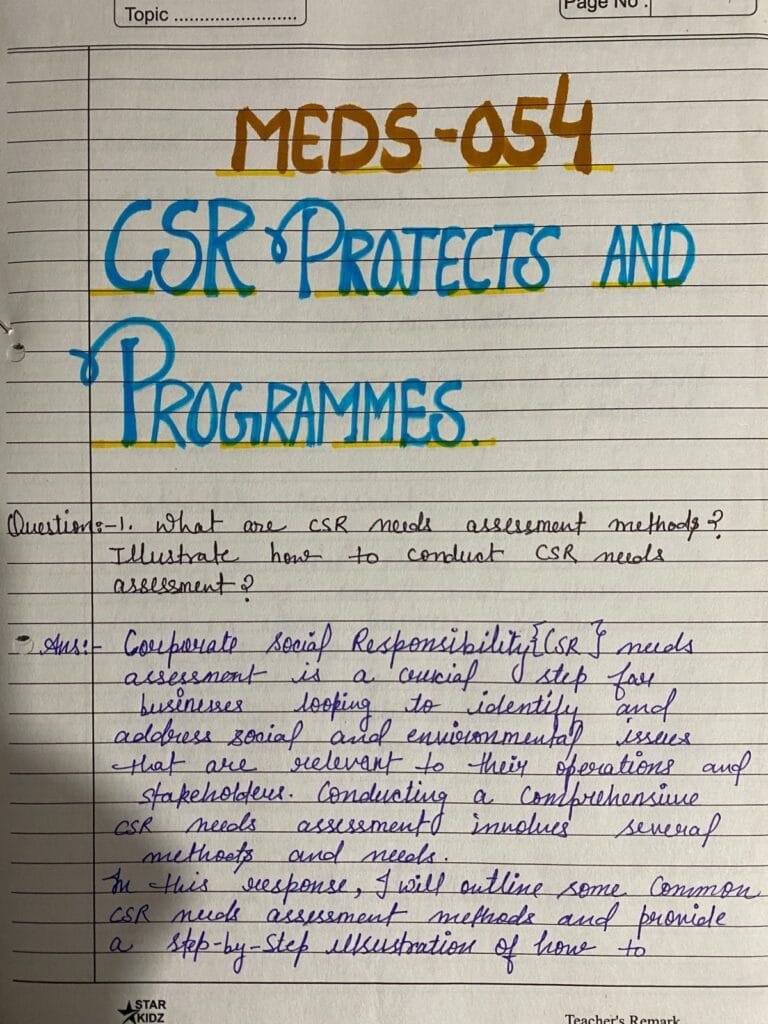 Topic ............................
Page No :
MEDS-054
CSR PROJECTS AND
PROGRAMMES.
Question:-1. What are CSR needs assessment methods?
Illustrate how to conduct CSR needs
assessment?
Ans:- Corporate social Responsibility{CSR} needs
assessment is a crucial step for
businesses looping to identify and
address social and environmental issues
that are relevant to their operations and
stakeholders. Conducting a comprehensive
CSR needs assessment involves several
methods and needs.
In this response, I will outline some common
CSR needs assessment methods and provide
a step-by-step illustration of how to
STAR
KIDZ
Teacher's Remark